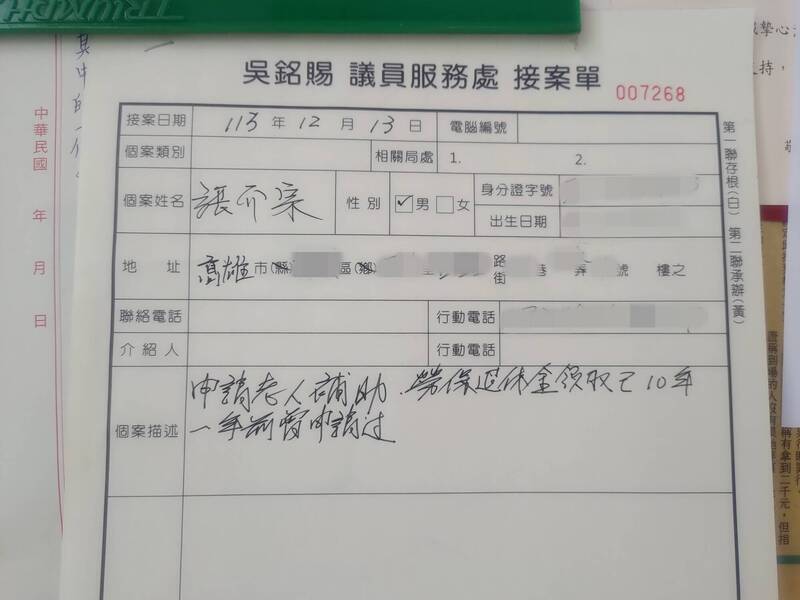 TRIUMPH
其中的一
中華民國 年 月 日
吳銘賜 議員服務處 接案單
007268
接案日期 113 年 12 月 13 日 電腦編號
個案類別 相關局處 1. 2.
個案姓名 張介宗 性別 ✓男 □女 身分證字號
出生日期
地址 高雄市(縣) 區(鄉) 路街 巷 弄 號 樓之
聯絡電話 行動電話
介紹人 行動電話
個案描述 申請老人補助.勞保退休金領取已10年
一年前曾申請过
第一聯存根(白) 第二聯承辦(黃)
摯心
支持,
稱有拿到二千元,但指